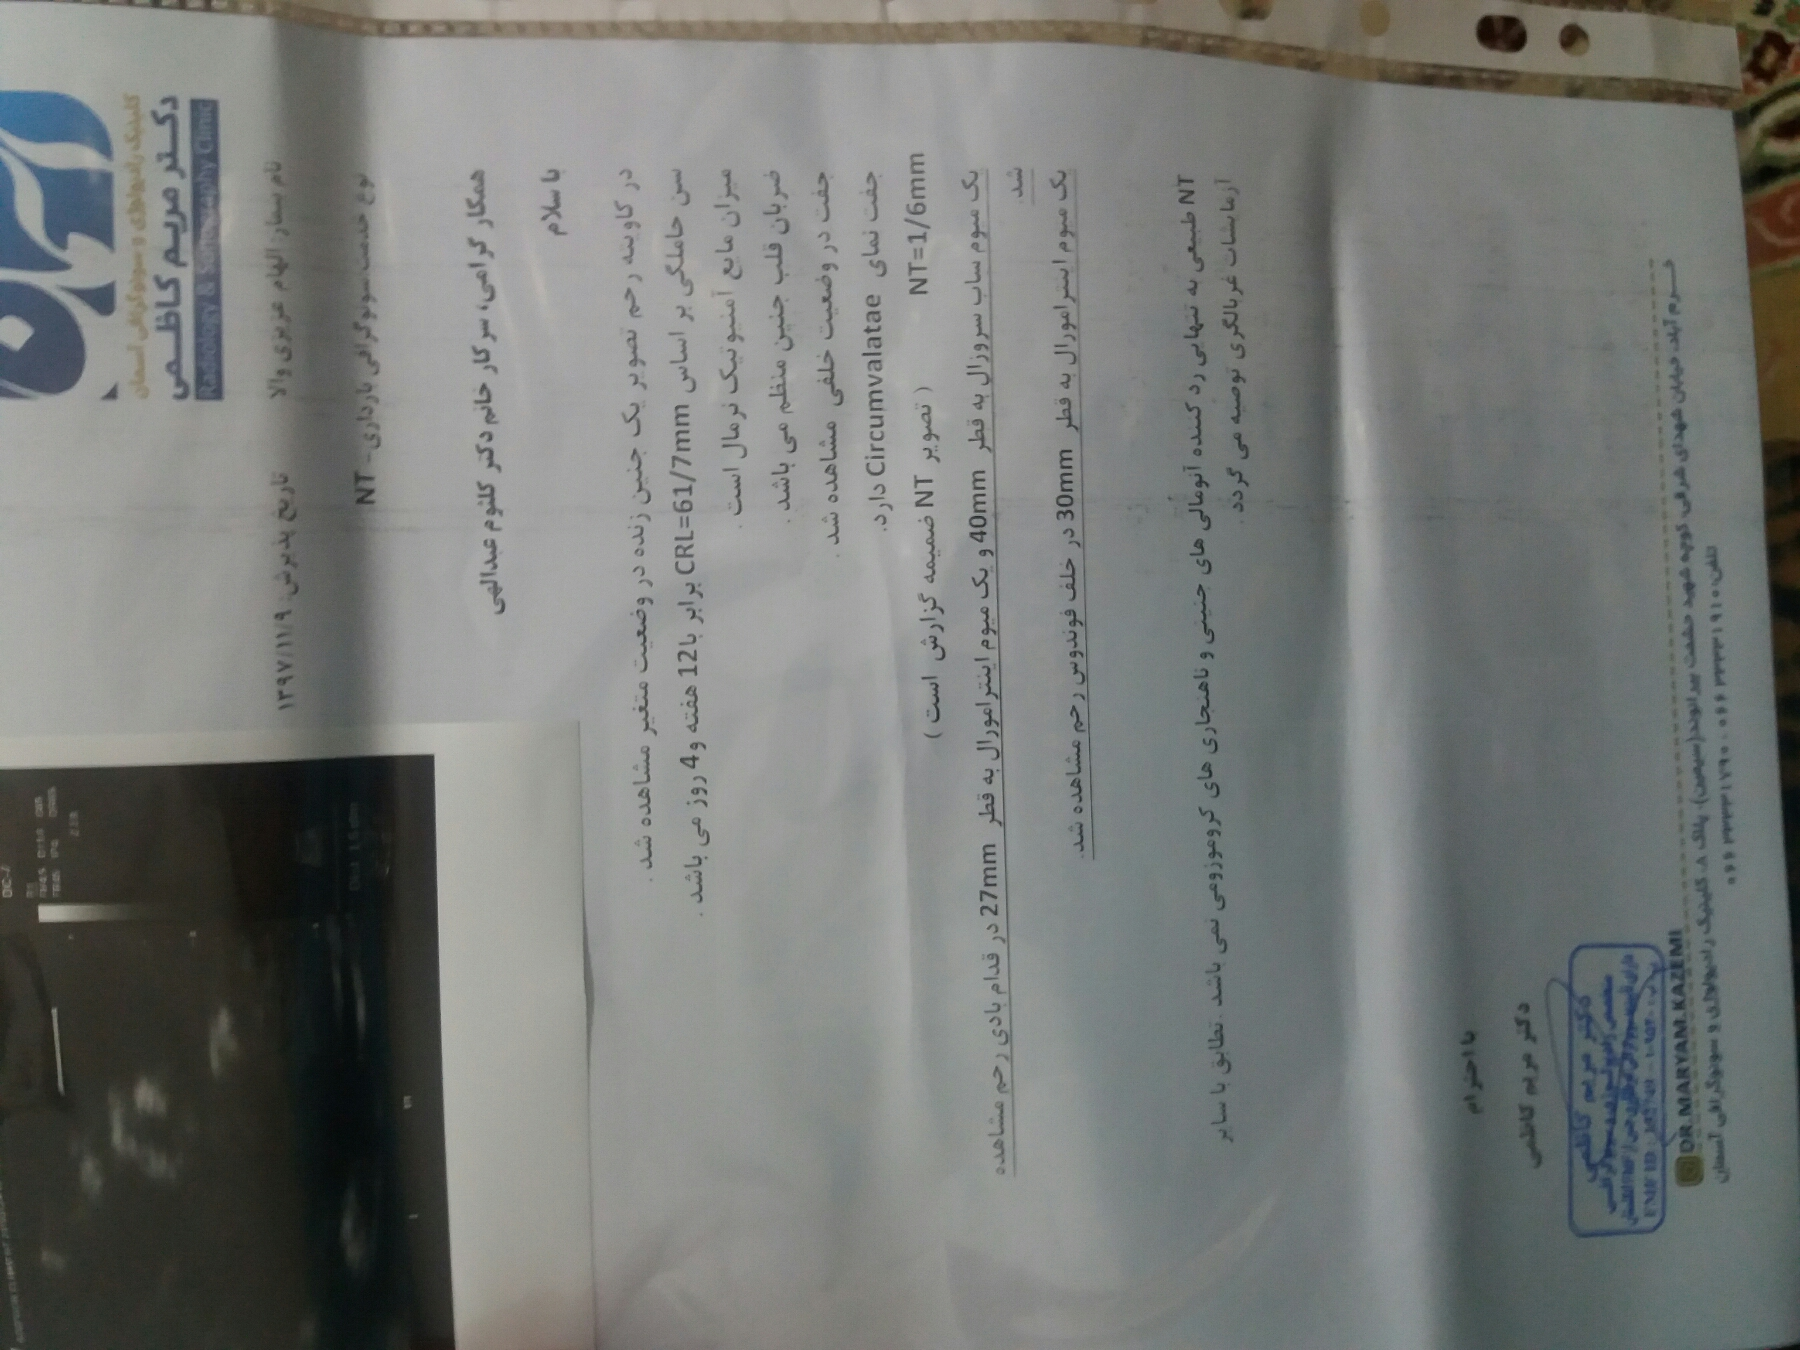 کلینیک رادیولوژی و سونوگرافی آسمان
دکتر مریم کاظمی
Radiology & Sonography Clinic
نام بیمار: الهام عزیزی والا
تاریخ پذیرش: ۱۳۹۷/۱۱/۹
نوع خدمت: سونوگرافی بارداری- NT
همکار گرامی، سرکار خانم دکتر کلثوم عبدالهی
با سلام
در کاویته رحم تصویر یک جنین زنده در وضعیت متغیر مشاهده شد .
سن حاملگی بر اساس CRL=61/7mm برابر با 12 هفته و 4 روز می باشد .
میزان مایع آمنیوتیک نرمال است .
ضربان قلب جنین منظم می باشد .
جفت در وضعیت خلفی مشاهده شد .
جفت نمای Circumvalatae دارد.
NT=1/6mm ( تصویر NT ضمیمه گزارش است )
یک میوم ساب سروزال به قطر 40mm و یک میوم اینترامورال به قطر 27mm در قدام بادی رحم مشاهده
شد.
یک میوم اینترامورال به قطر 30mm در خلف فوندوس رحم مشاهده شد.
NT طبیعی به تنهایی رد کننده آنومالی های جنینی و ناهنجاری های کروموزومی نمی باشد . تطابق با سایر
آزمایشات غربالگری توصیه می گردد .
با احترام
دکتر مریم کاظمی
دکتر مریم کاظمی
DR.MARYAM.KAZEMI
خرم آباد، خیابان شهدای شرقی، کوچه شهید حشمت بیرانوند(سیمین)، پلاک ۸، کلینیک رادیولوژی و سونوگرافی آسمان